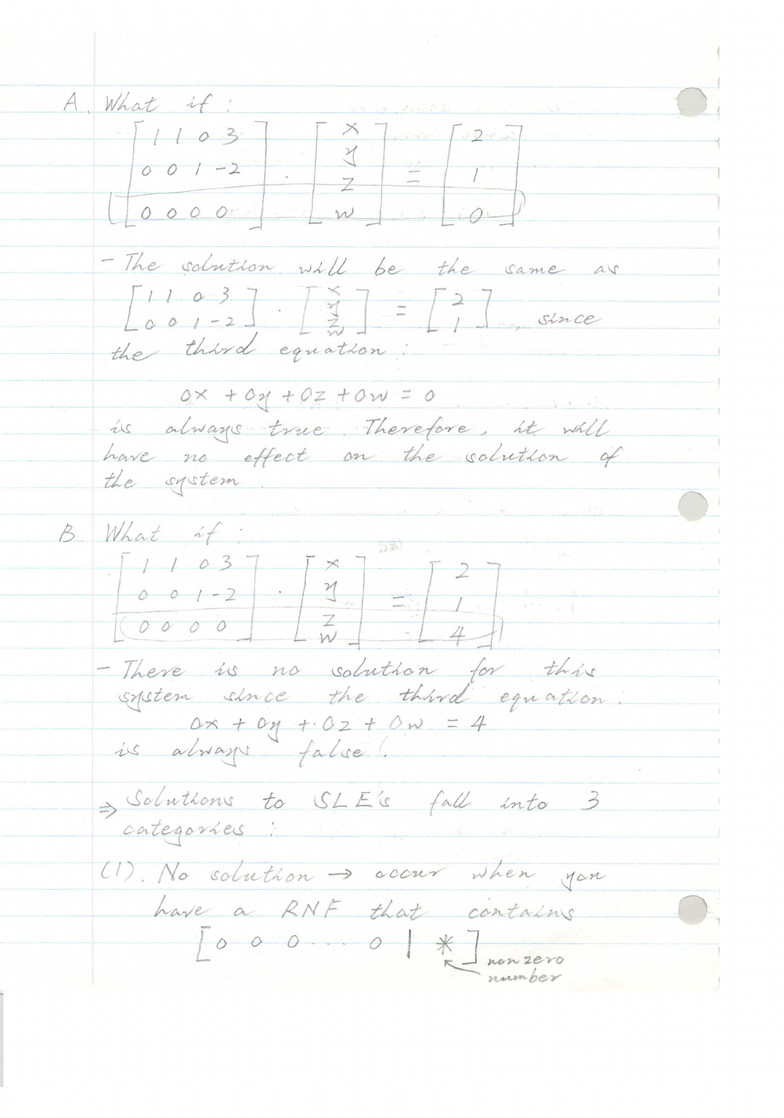 A. What if :
[ 1 1 0 3 ] [ x ] [ 2 ]
[ 0 0 1 -2 ] . [ y ] = [ 1 ]
[ 0 0 0 0 ] [ z ] [ 0 ]
[ w ]
- The solution will be the same as
[ 1 1 0 3 ] . [ x ] = [ 2 ]
[ 0 0 1 -2 ] [ y ] [ 1 ] , since
[ z ]
[ w ]
the third equation :
0x + 0y + 0z + 0w = 0
is always true. Therefore, it will
have no effect on the solution of
the system.
B. What if :
[ 1 1 0 3 ] [ x ] [ 2 ]
[ 0 0 1 -2 ] . [ y ] = [ 1 ]
[ 0 0 0 0 ] [ z ] [ 4 ]
[ w ]
- There is no solution for this
system since the third equation.
0x + 0y + 0z + 0w = 4
is always false!
⇒ Solutions to SLE's fall into 3
categories :
(1). No solution → occur when you
have a RNF that contains
[ 0 0 0 .... 0 | * ]
nonzero
number